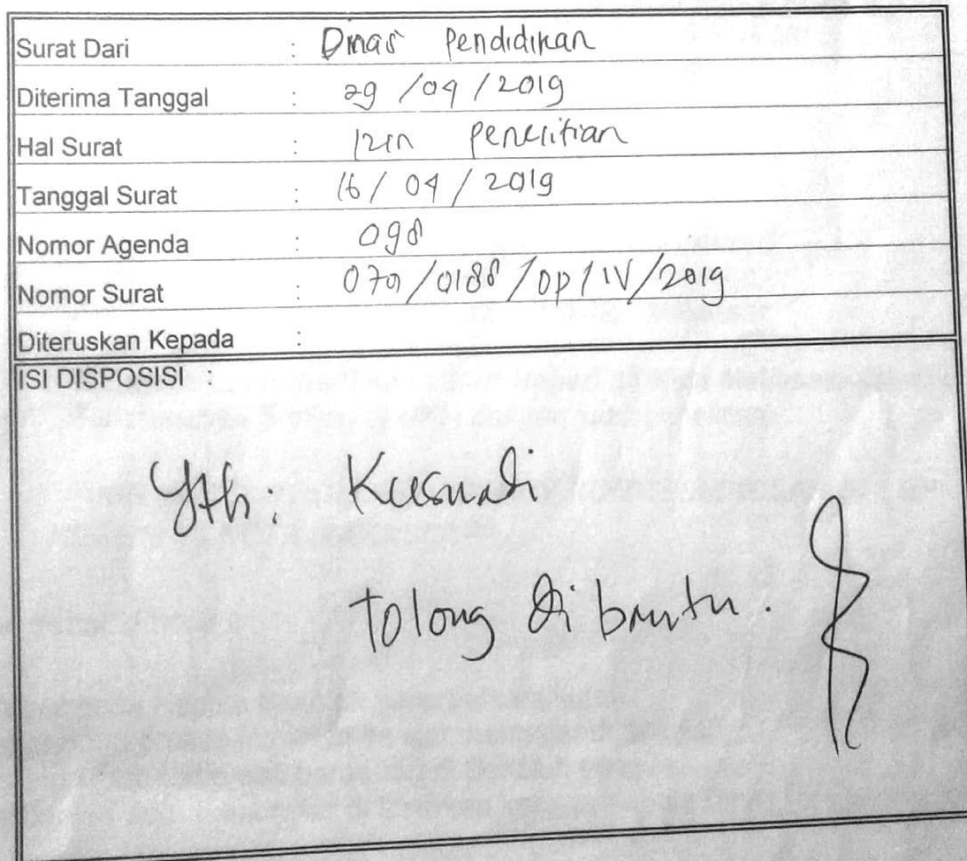 Surat Dari : Dinas Pendidikan
Diterima Tanggal : 29 / 04 / 2019
Hal Surat : Izin Penelitian
Tanggal Surat : 16 / 04 / 2019
Nomor Agenda : 098
Nomor Surat : 070 / 0188 / DP / IV / 2019
Diteruskan Kepada :
ISI DISPOSISI
Yth. Keswadi
tolong di bantu.